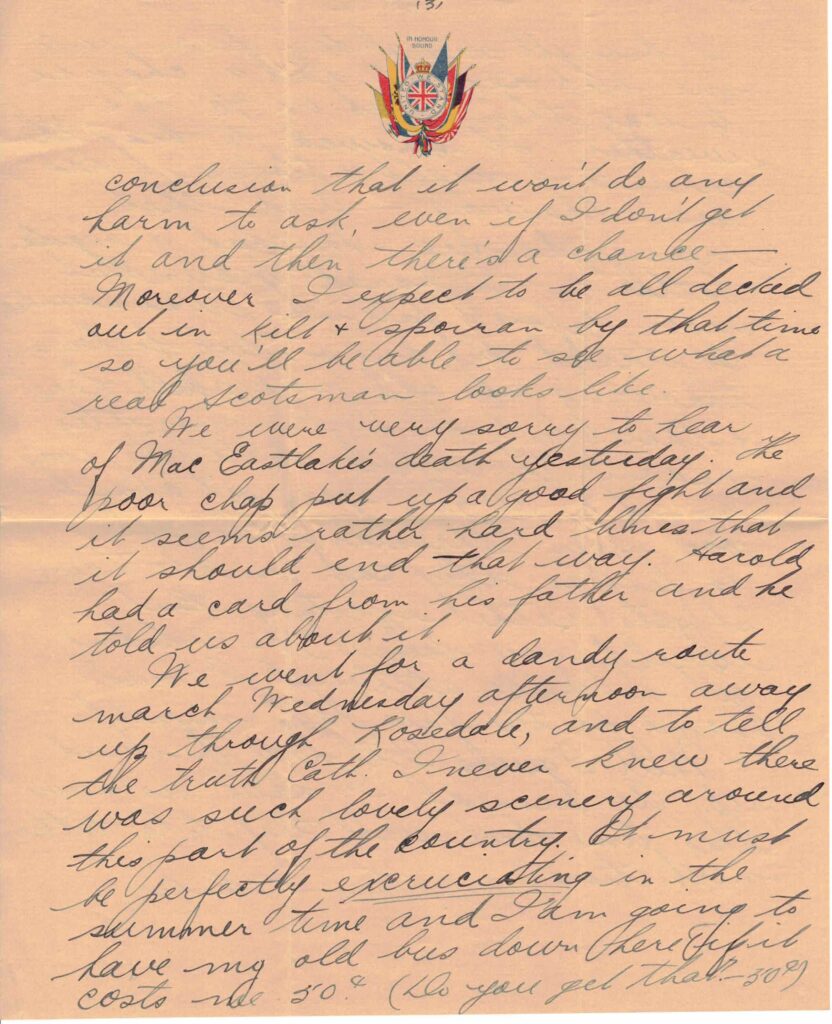 (3)
IN HONOUR
BOUND
conclusion that it won't do any
harm to ask, even if I don't get
it and then there's a chance —
Moreover I expect to be all decked
out in kilt & sporran by that time
so you'll be able to see what a
real Scotsman looks like.
We were very sorry to hear
of Mac Eastlake's death yesterday. The
poor chap put up a good fight and
it seems rather hard lines that
it should end that way. Harold
had a card from his father and he
told us about it.
We went for a dandy route
march Wednesday afternoon away
up through Rosedale, and to tell
the truth Cath. I never knew there
was such lovely scenery around
this part of the country. It must
be perfectly excruciating in the
summer time and I am going to
have my old bus down here if it
costs me 50¢ (Do you get that? – 50¢)